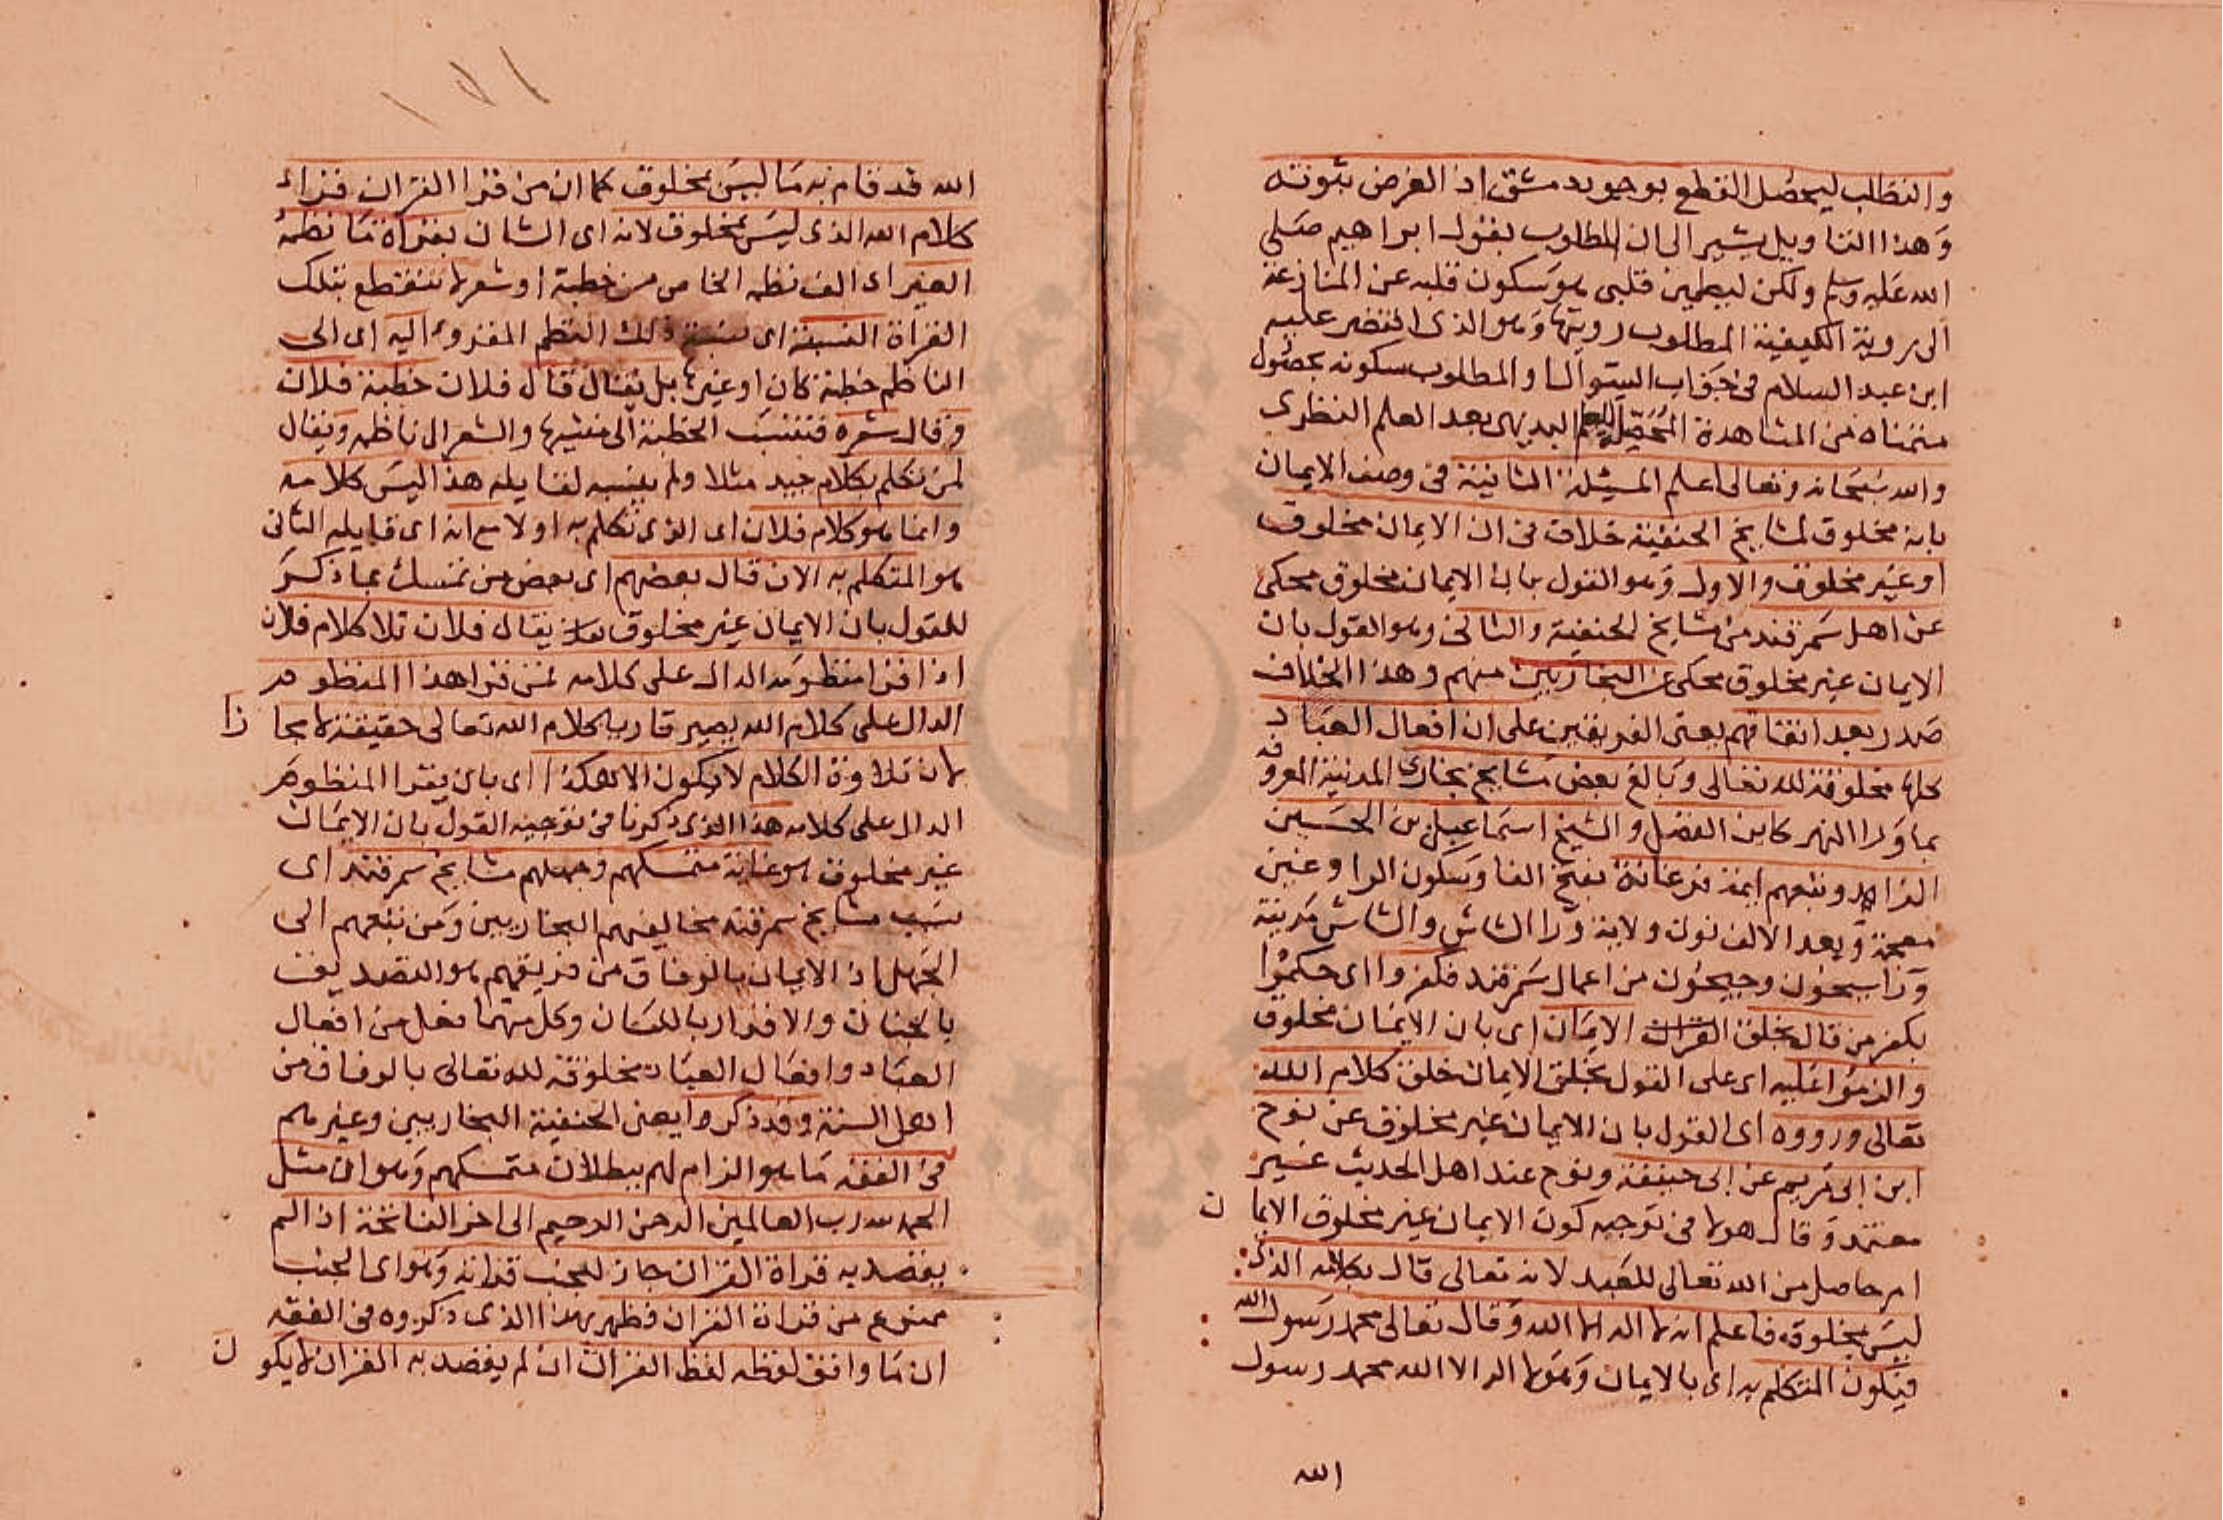 والتطلب ليحصل القطع بوجود دمشق اذ الغرض ثبوته
وهذا التاويل يشير الى ان المطلوب بقول ابراهيم صلى
الله عليه وسلم ولكن ليطمين قلبى هو سكون قلبه عن المنازعة
الى روية الكيفية المطلوب رويتها وهو الذى اقتصر عليه
ابن عبد السلام فى جواب السوال او المطلوب سكونه بحصول
متمناه من المشاهدة المحصلة للعلم البديهى بعد العلم النظرى
والله سبحانه وتعالى اعلم المسئلة الثانية فى وصف الايمان
بانه مخلوق لمشايخ الحنفية خلاف فى ان الايمان مخلوق
او غير مخلوق والاول وهو القول بان الايمان مخلوق محكى
عن اهل سمرقند من مشايخ الحنفية والثانى وهو القول بان
الايمان غير مخلوق محكى عن البخاريين منهم وهذا الخلاف
صدر بعد اتفاقهم يعنى الفريقين على ان افعال العباد
كلها مخلوقة لله تعالى وبالغ بعض مشايخ بخارى المدينة المعروفة
بما ورا النهر كابن الفضل والشيخ اسماعيل بن الحسين
الزاهد وتبعهم ايمة فرغانة بفتح الفا وسكون الرا وغين
معجمة وبعد الالف نون ولاية ورا الشاش والشاش مدينة
ورا سيحون وجيحون من اعمال سمرقند فكفروا اى حكموا
بكفر من قال بخلق القران الايمان اى بان الايمان مخلوق
والزموا عليه اى على القول بخلق الايمان خلق كلام الله
تعالى ورووه اى القول بان الايمان غير مخلوق عن نوح
ابن ابى مريم عن ابى حنيفة ونوح عند اهل الحديث غير
معتمد وقال هولا فى توجيه كون الايمان غير مخلوق الايمان
امر حاصل من الله تعالى للعبد لانه تعالى قال بكلامه الذى
ليس بمخلوق فاعلم انه لا اله الا الله وقال تعالى محمد رسول الله
فيكون المتكلم به اى بالايمان وهو لا اله الا الله محمد رسول
الله
١٧١
الله قد قام به ما ليس بمخلوق كما ان من قرا القران قراء
كلام الله الذى ليس بمخلوق لانه اى الشان بقراة ما نظمه
الغير اى الف نظمه الخاص من خطبة او شعر لا تنقطع بتلك
القراة النسبة اى نسبة ذلك النظم المقروء اليه اى الى
الناظم خطبة كان او غيرها بل يقال قال فلان خطبة فلان
وقال شعره فتنسب الخطبة الى منشيها والشعر الى ناظمه ويقال
لمن تكلم بكلام جيد مثلا ولم ينسبه لقايله هذا ليس كلامه
وانما هو كلام فلان اى الذى تكلم به اولا مع انه اى قايله الثانى
هو المتكلم به الان قال بعضهم اى بعض من تمسك بما ذكر
للقول بان الايمان غير مخلوق يقال فلان تلا كلام فلان
اذا قرا منظومه الدال على كلامه فمن قرا هذا المنظوم
الدال على كلام الله يصير قاريا كلام الله تعالى حقيقة لا مجازا
لان تلاوة الكلام لا يكون الا هكذا اى بان يقرا المنظوم
الدال على كلامه هذا الذى ذكرنا فى توجيه القول بان الايمان
غير مخلوق هو غاية متمسكهم وجهلهم مشايخ سمرقند اى
نسب مشايخ سمرقند مخالفيهم البخاريين ومن تبعهم الى
الجهل اذ الايمان بالوفاق من فريقهم هو التصديق
بالجنان والاقرار باللسان وكل منهما فعل من افعال
العباد وافعال العباد مخلوقة لله تعالى بالوفاق من
اهل السنة وقد ذكروا يعنى الحنفية البخاريين وغيرهم
فى الفقه ما هو الزام لهم ببطلان متمسكهم وهو ان مثل
الحمد لله رب العالمين الرحمن الرحيم الى اخر الفاتحة اذا لم
يقصد به قراة القران جاز للجنب قراته وهو اى الجنب
ممنوع من قراة القران فظهر بهذا الذى ذكروه فى الفقه
ان ما وافق لفظه لفظ القران ان لم يقصد به القران لا يكون